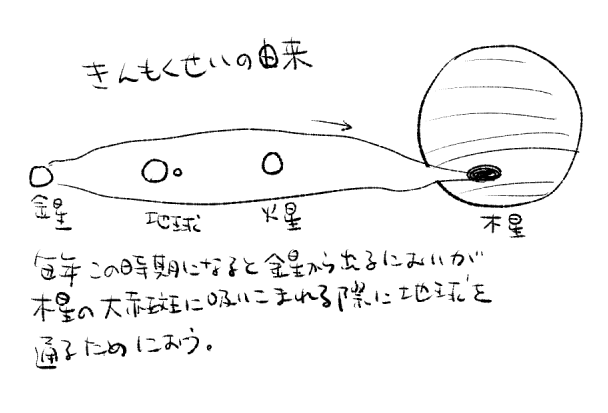 きんもくせいの由来
金星
地球
火星
木星
毎年この時期になると金星から出るにおいが
木星の大赤斑に吸いこまれる際に地球を
通るためにおう。